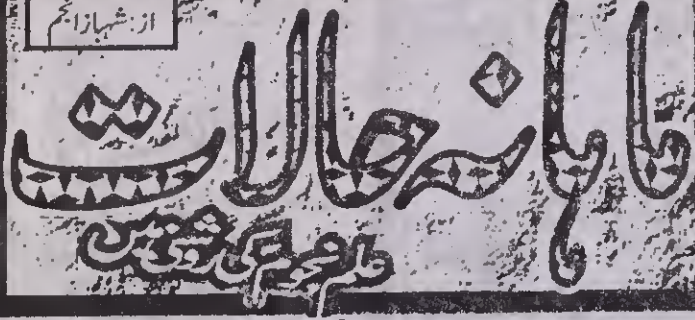 از: شہباز انجم
ماہانہ حالات
علم نجوم کی روشنی میں